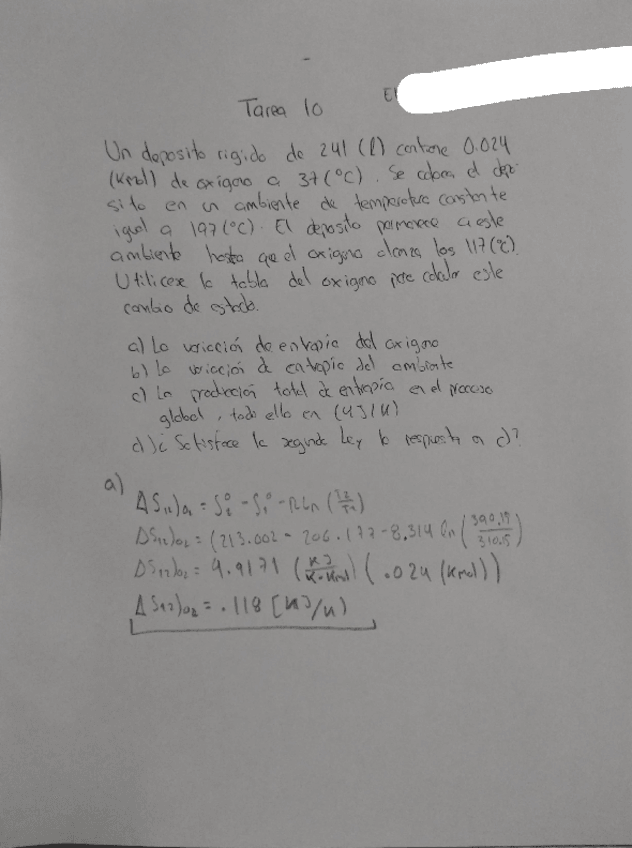 Tarea 10
Un deposito rigido de 241 (l) contiene 0.024
(Kmol) de oxigeno a 37 (°C). Se coloca el depo-
sito en un ambiente de temperatura constante
igual a 197 (°C). El deposito permanece a este
ambiente hasta que el oxigeno alcanza los 117 (°C).
Utilicese la tabla del oxigeno para calcular este
cambio de estado.
a) La variación de entropia del oxigeno
b) la variación de entropia del ambiente
c) La producción total de entropía en el proceso
global, todo ello en (KJ/K)
d) ¿Satisface la segunda Ley la respuesta a c)?
a)
ΔS₁₂)O₂ = S₂° - S₁° - R Ln (T2/T1)
ΔS₁₂)O₂ = (213.002 - 206.177 - 8.314 ln (390.15/310.5)
ΔS₁₂)O₂ = 4.9171 (KJ/K·Kmol) (.024 (Kmol))
ΔS₁₂)O₂ = .118 [KJ/K)